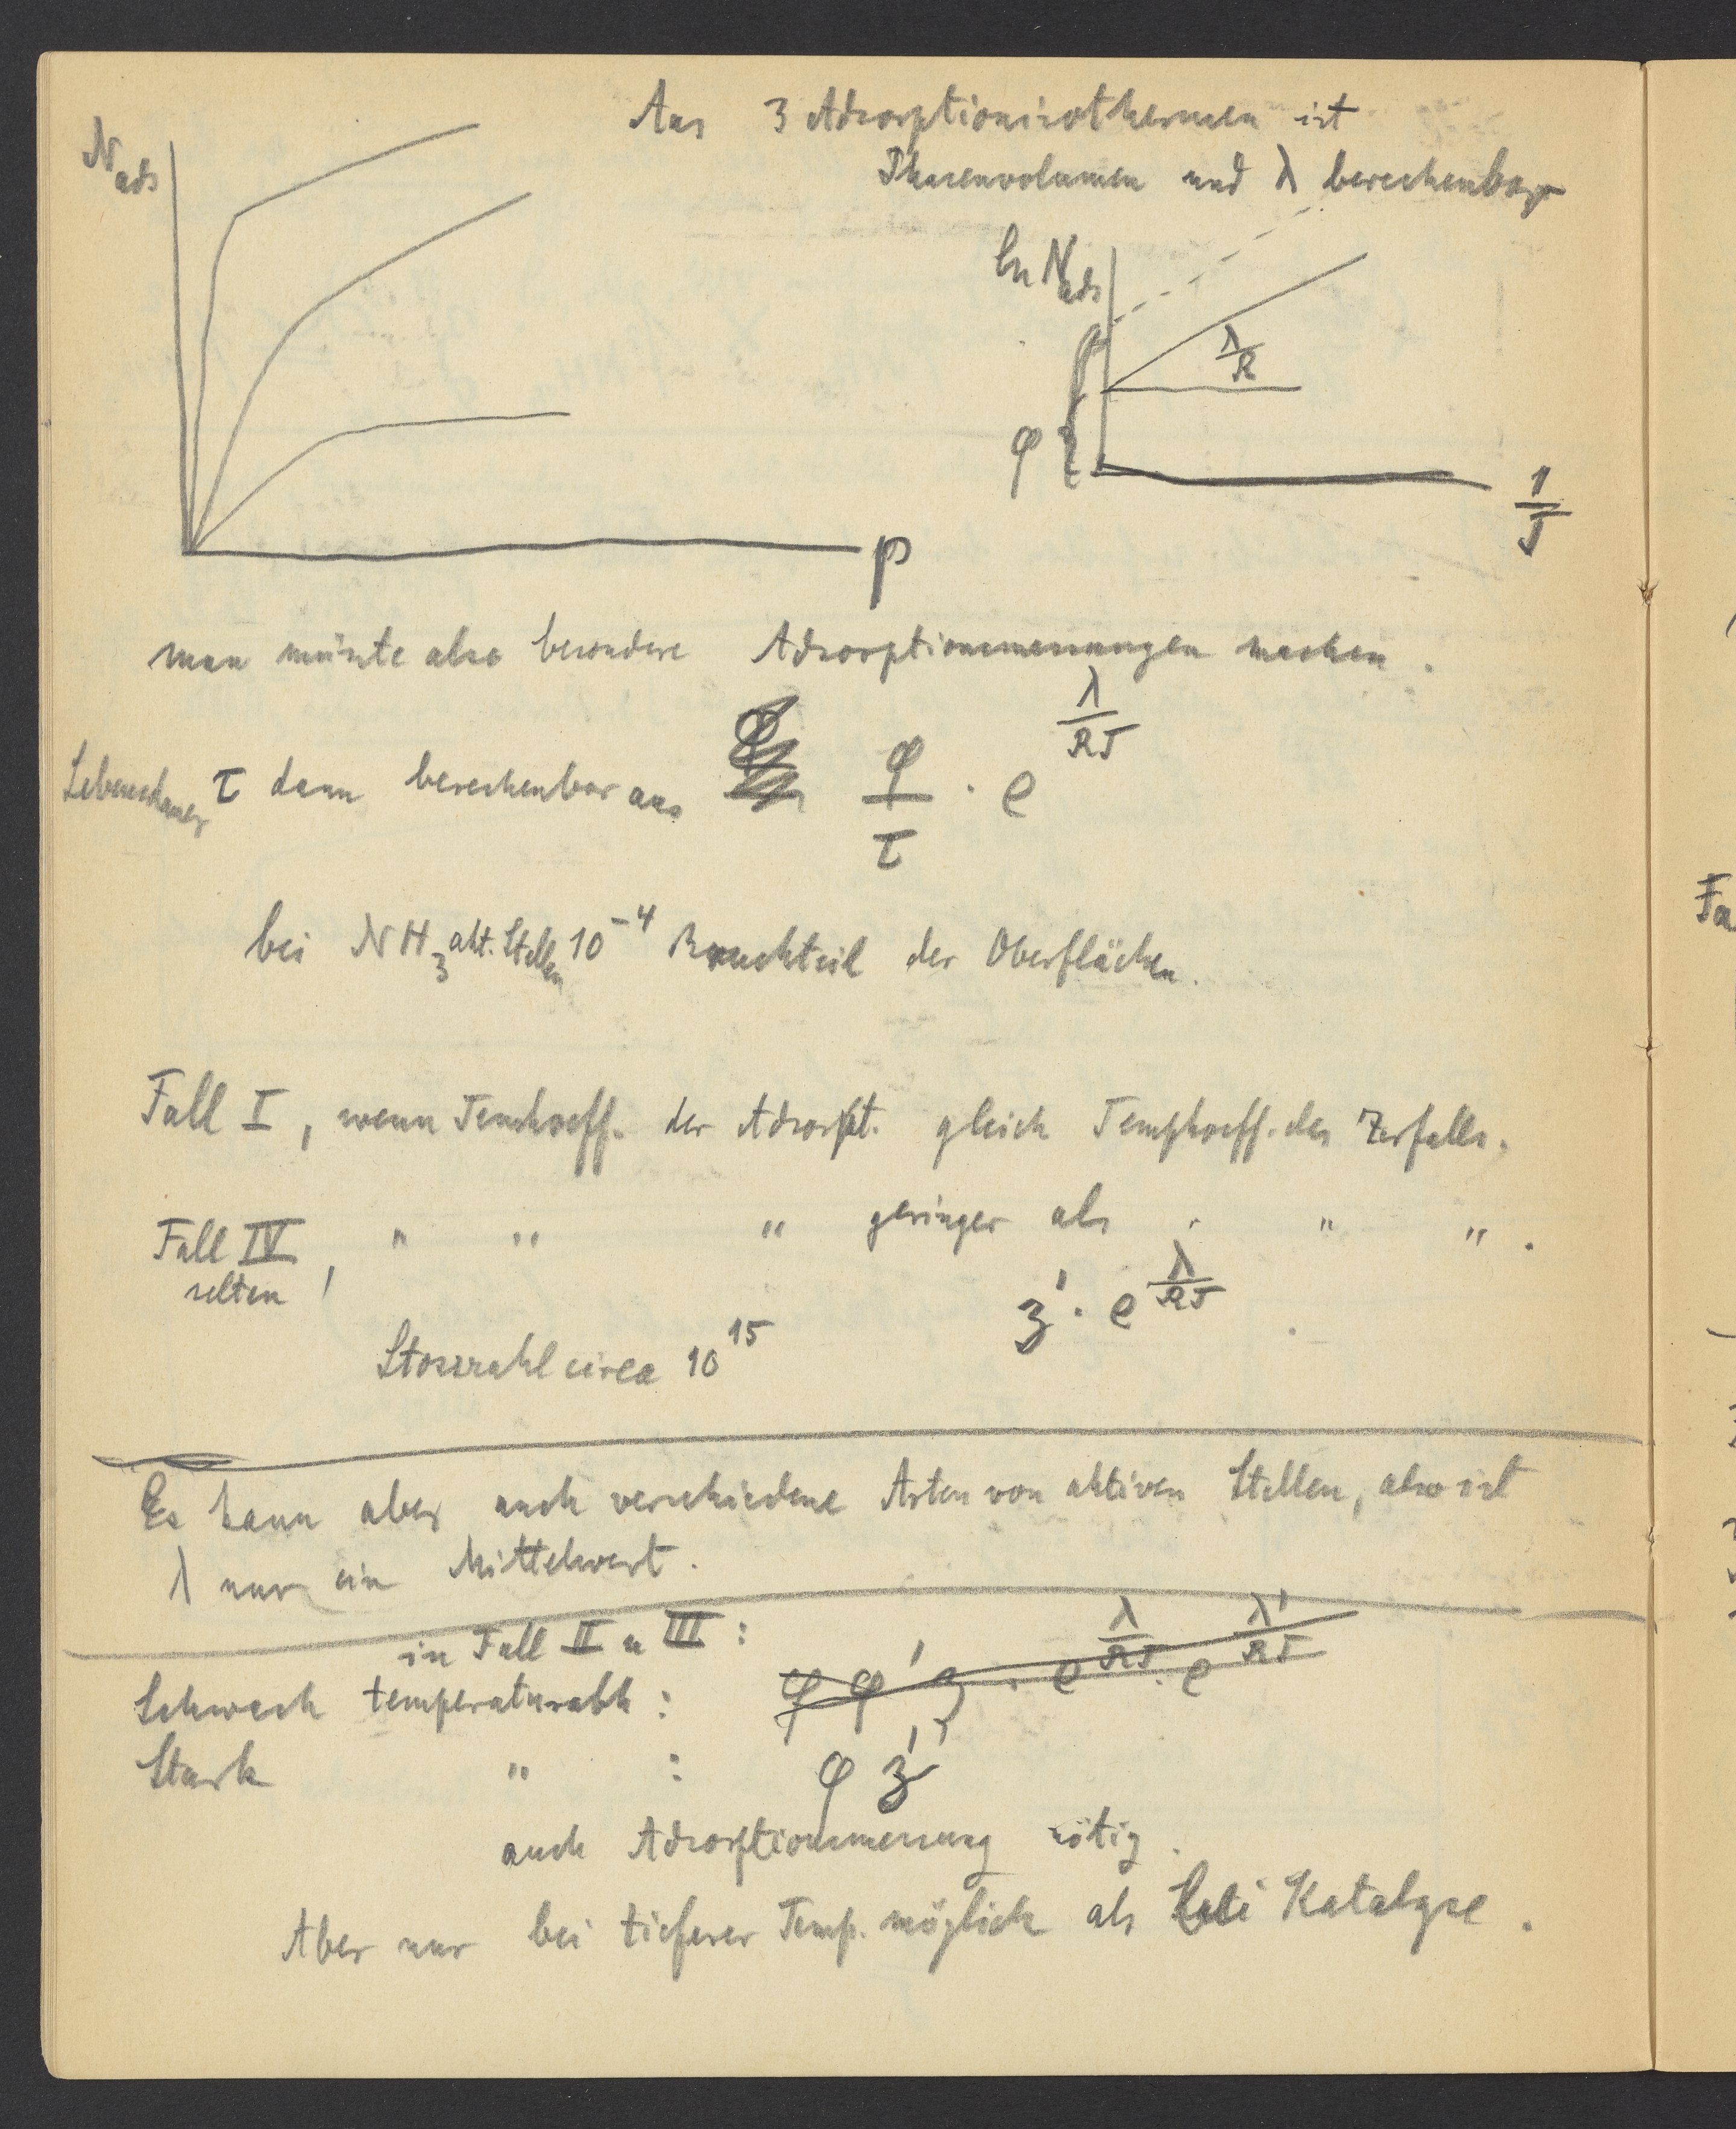 Aus 3 Adsorptionsisothermen ist
Phasenvolumen und λ berechenbar
N ads
p
ln N ads
λ/R
φ
1/T
man müsste also besondere Adsorptionsmessungen machen.
Lebensdauer τ dann berechenbar aus φ/τ · e^(λ/RT)
bei NH₃ akt. Stellen 10⁻⁴ Bruchteil der Oberflächen.
Fall I, wenn Temkoeff. der Adsorpt. gleich Tempkoeff. des Zerfalls.
Fall IV, " " " geringer als " " ".
selten!
z' · e^(λ/RT)
Stosszahl circa 10¹⁵
Es kann aber auch verschiedene Arten von aktiven Stellen, also ist
λ nur ein Mittelwert.
in Fall II u III:
Schwach temperaturabh: φ φ' z · e^(λ/RT) · e^(λ'/RT)
Stark " : φ z'
auch Adsorptionsmessung nötig.
Aber nur bei tieferer Temp. möglich als bei Katalyse.
Fa